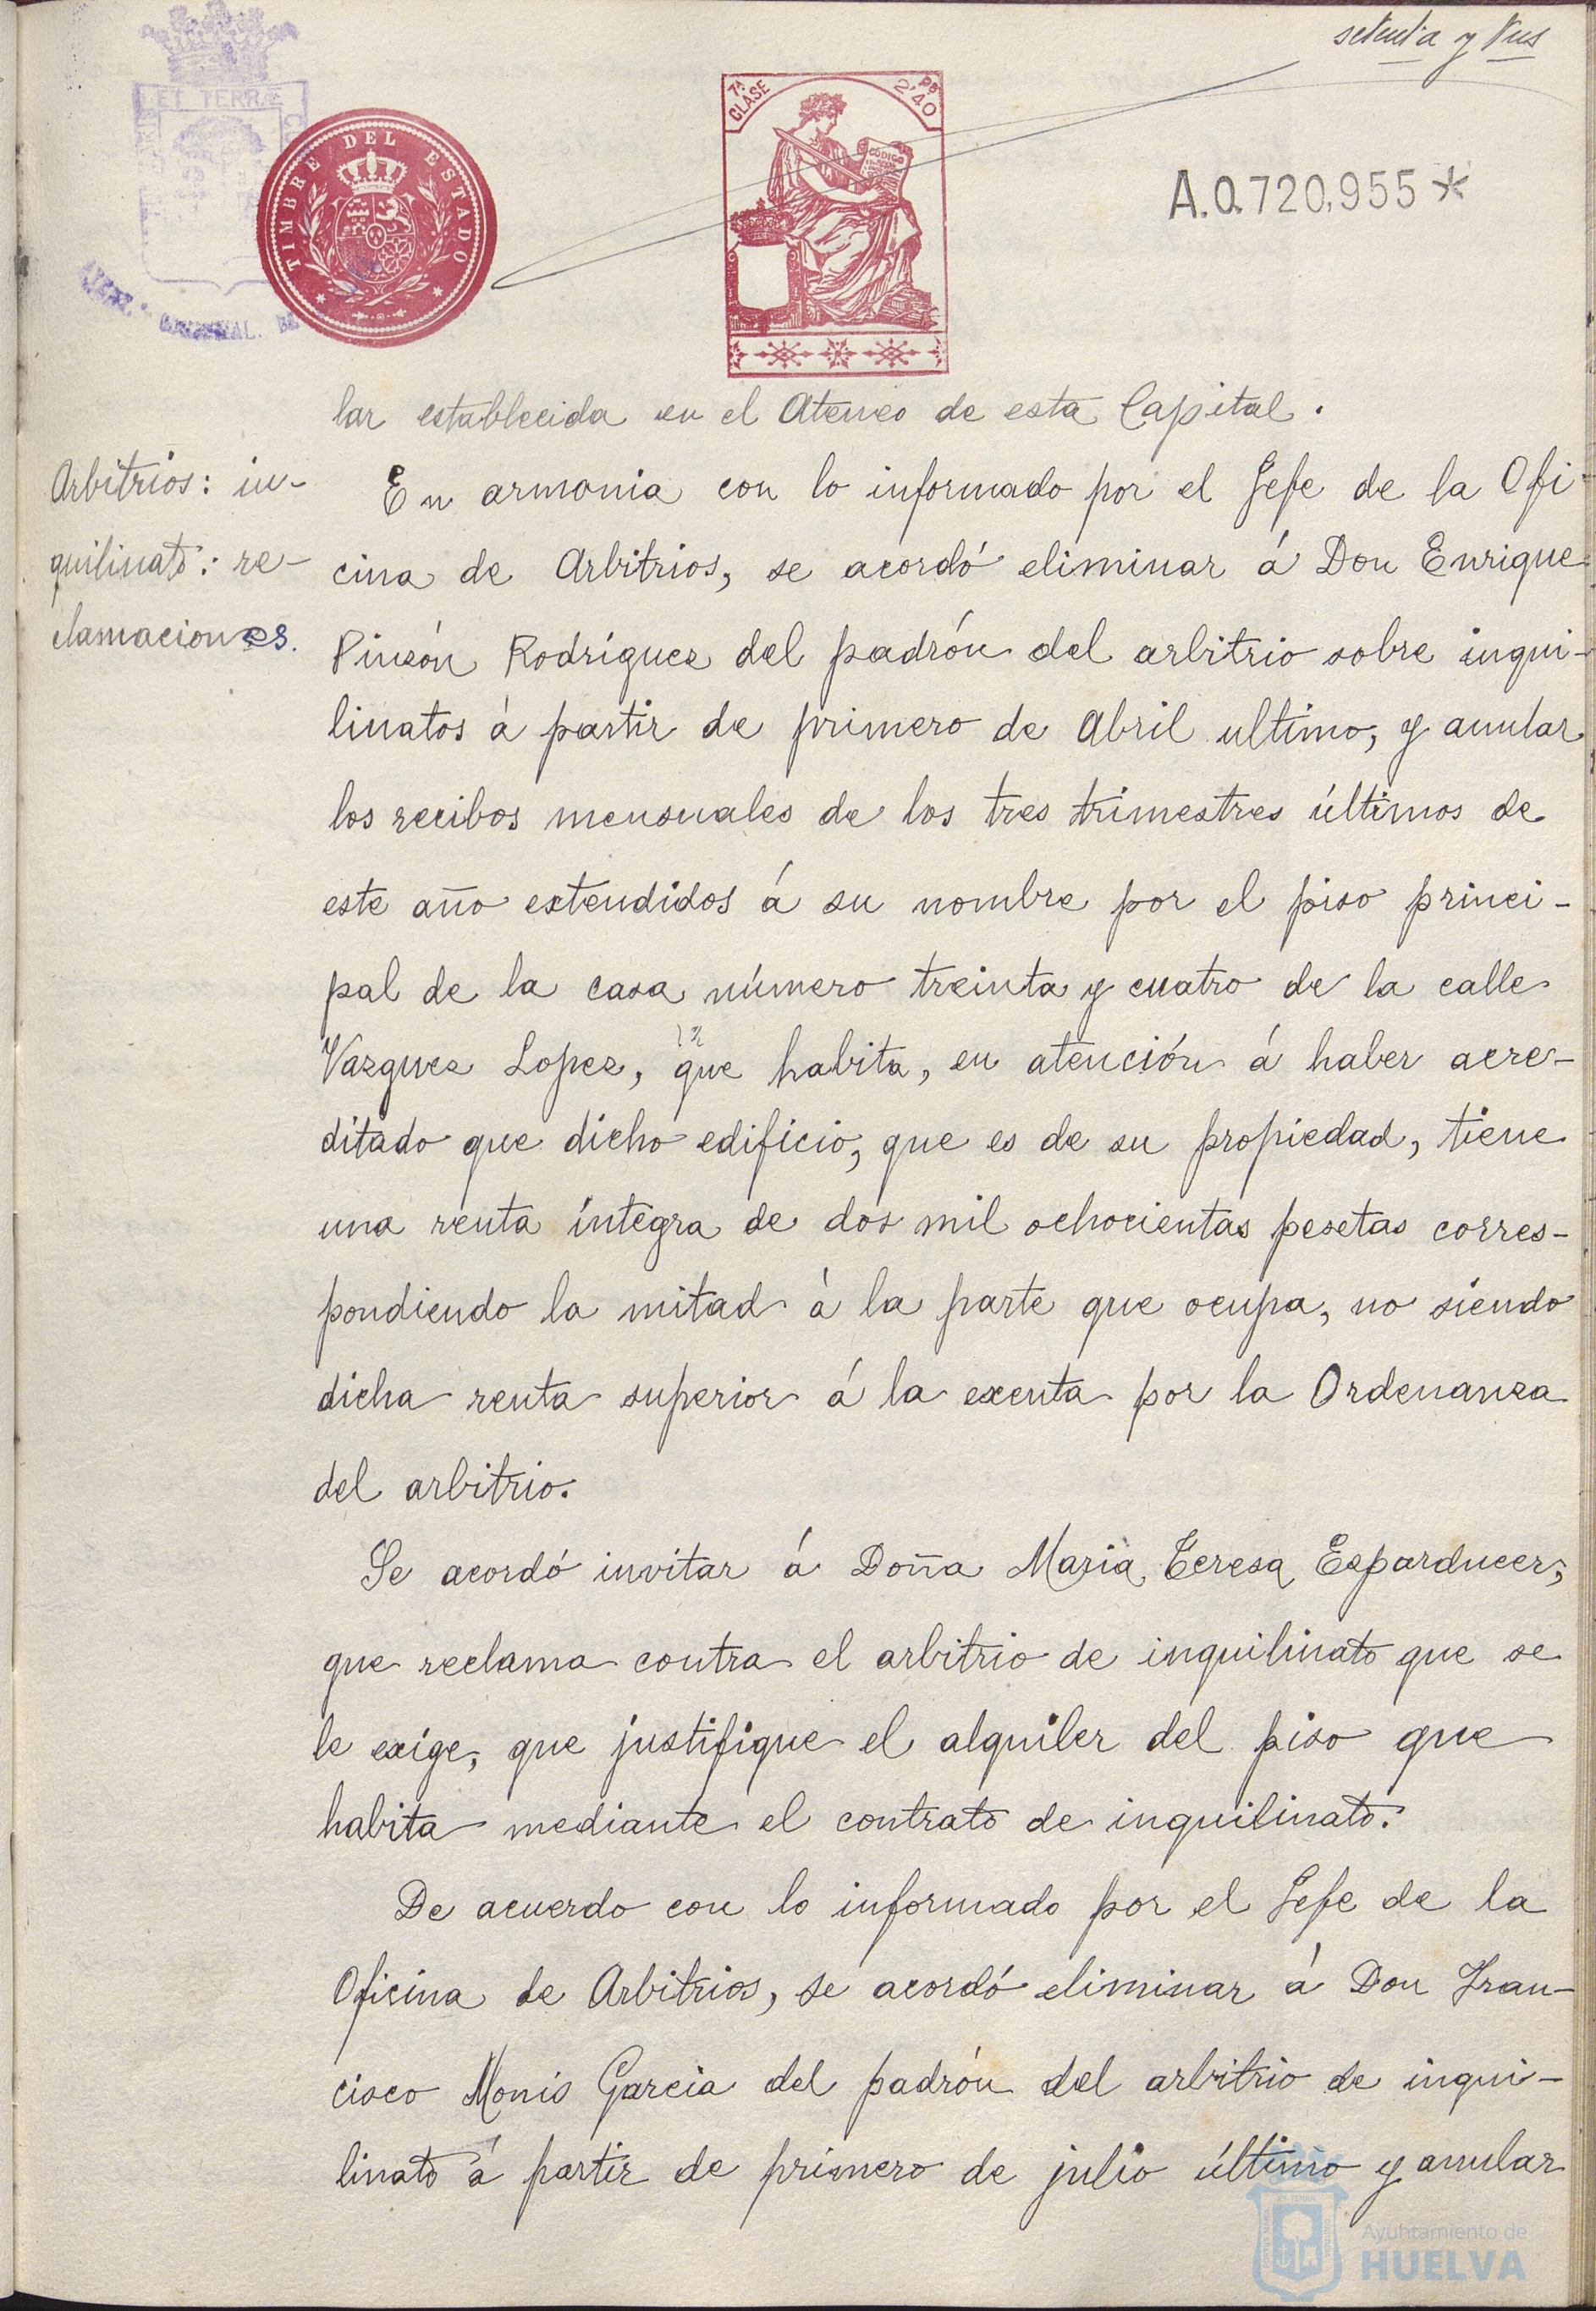 setenta y tres
7ª CLASE
2'40 Ps
ET TERRÆ
TIMBRE DEL ESTADO
CODIGO
A.0.720,955*
lar establecida en el Ateneo de esta Capital.
Arbitrios: in-
quilinato: re-
clamaciones.
En armonia con lo informado por el Jefe de la Ofi-
cina de Arbitrios, se acordó eliminar á Don Enrique
Pinzón Rodríguez del padrón del arbitrio sobre inqui-
linatos á partir de primero de Abril ultimo, y anular
los recibos mensuales de los tres trimestres últimos de
este año extendidos á su nombre por el piso princi-
pal de la casa número treinta y cuatro de la calle
Vazquez Lopez, que habita, en atención á haber acre-
ditado que dicho edificio, que es de su propiedad, tiene
una renta íntegra de dos mil ochocientas pesetas corres-
pondiendo la mitad á la parte que ocupa, no siendo
dicha renta superior á la exenta por la Ordenanza
del arbitrio.
Se acordó invitar á Doña Maria Teresa Esparducer,
que reclama contra el arbitrio de inquilinato que se
le exige, que justifique el alquiler del piso que
habita mediante el contrato de inquilinato.
De acuerdo con lo informado por el Jefe de la
Oficina de Arbitrios, se acordó eliminar á Don Fran-
cisco Monis Garcia del padrón del arbitrio de inqui-
linato á partir de primero de julio último y anular
Ayuntamiento de
HUELVA